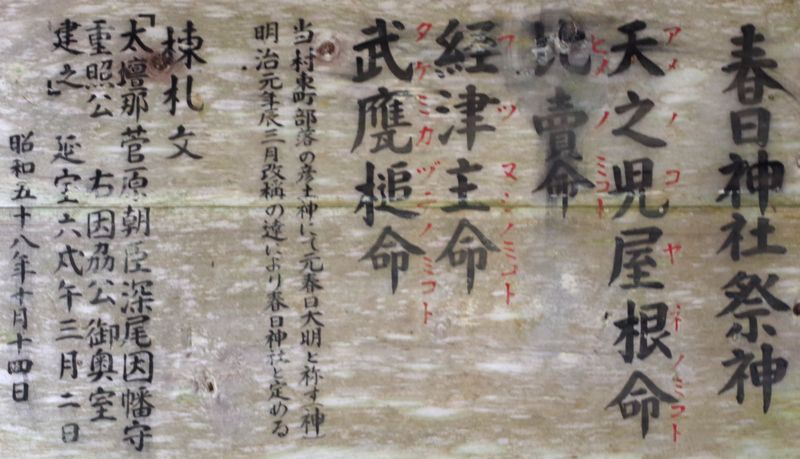 春日神社祭神
天之児屋根命
アメノコヤネノミコト
比賣命
ヒメノミコト
経津主命
フツヌシノミコト
武甕槌命
タケミカヅチノミコト
当村東町部落の産土神にて元春日大明と称す（神）
明治元年辰三月改稱の達により春日神社と定める
棟札文
「大壇那菅原朝臣深尾因幡守
重照公 右因幡公御奥室
建之」 延宝六戊午三月二日
昭和五十八年十月十四日